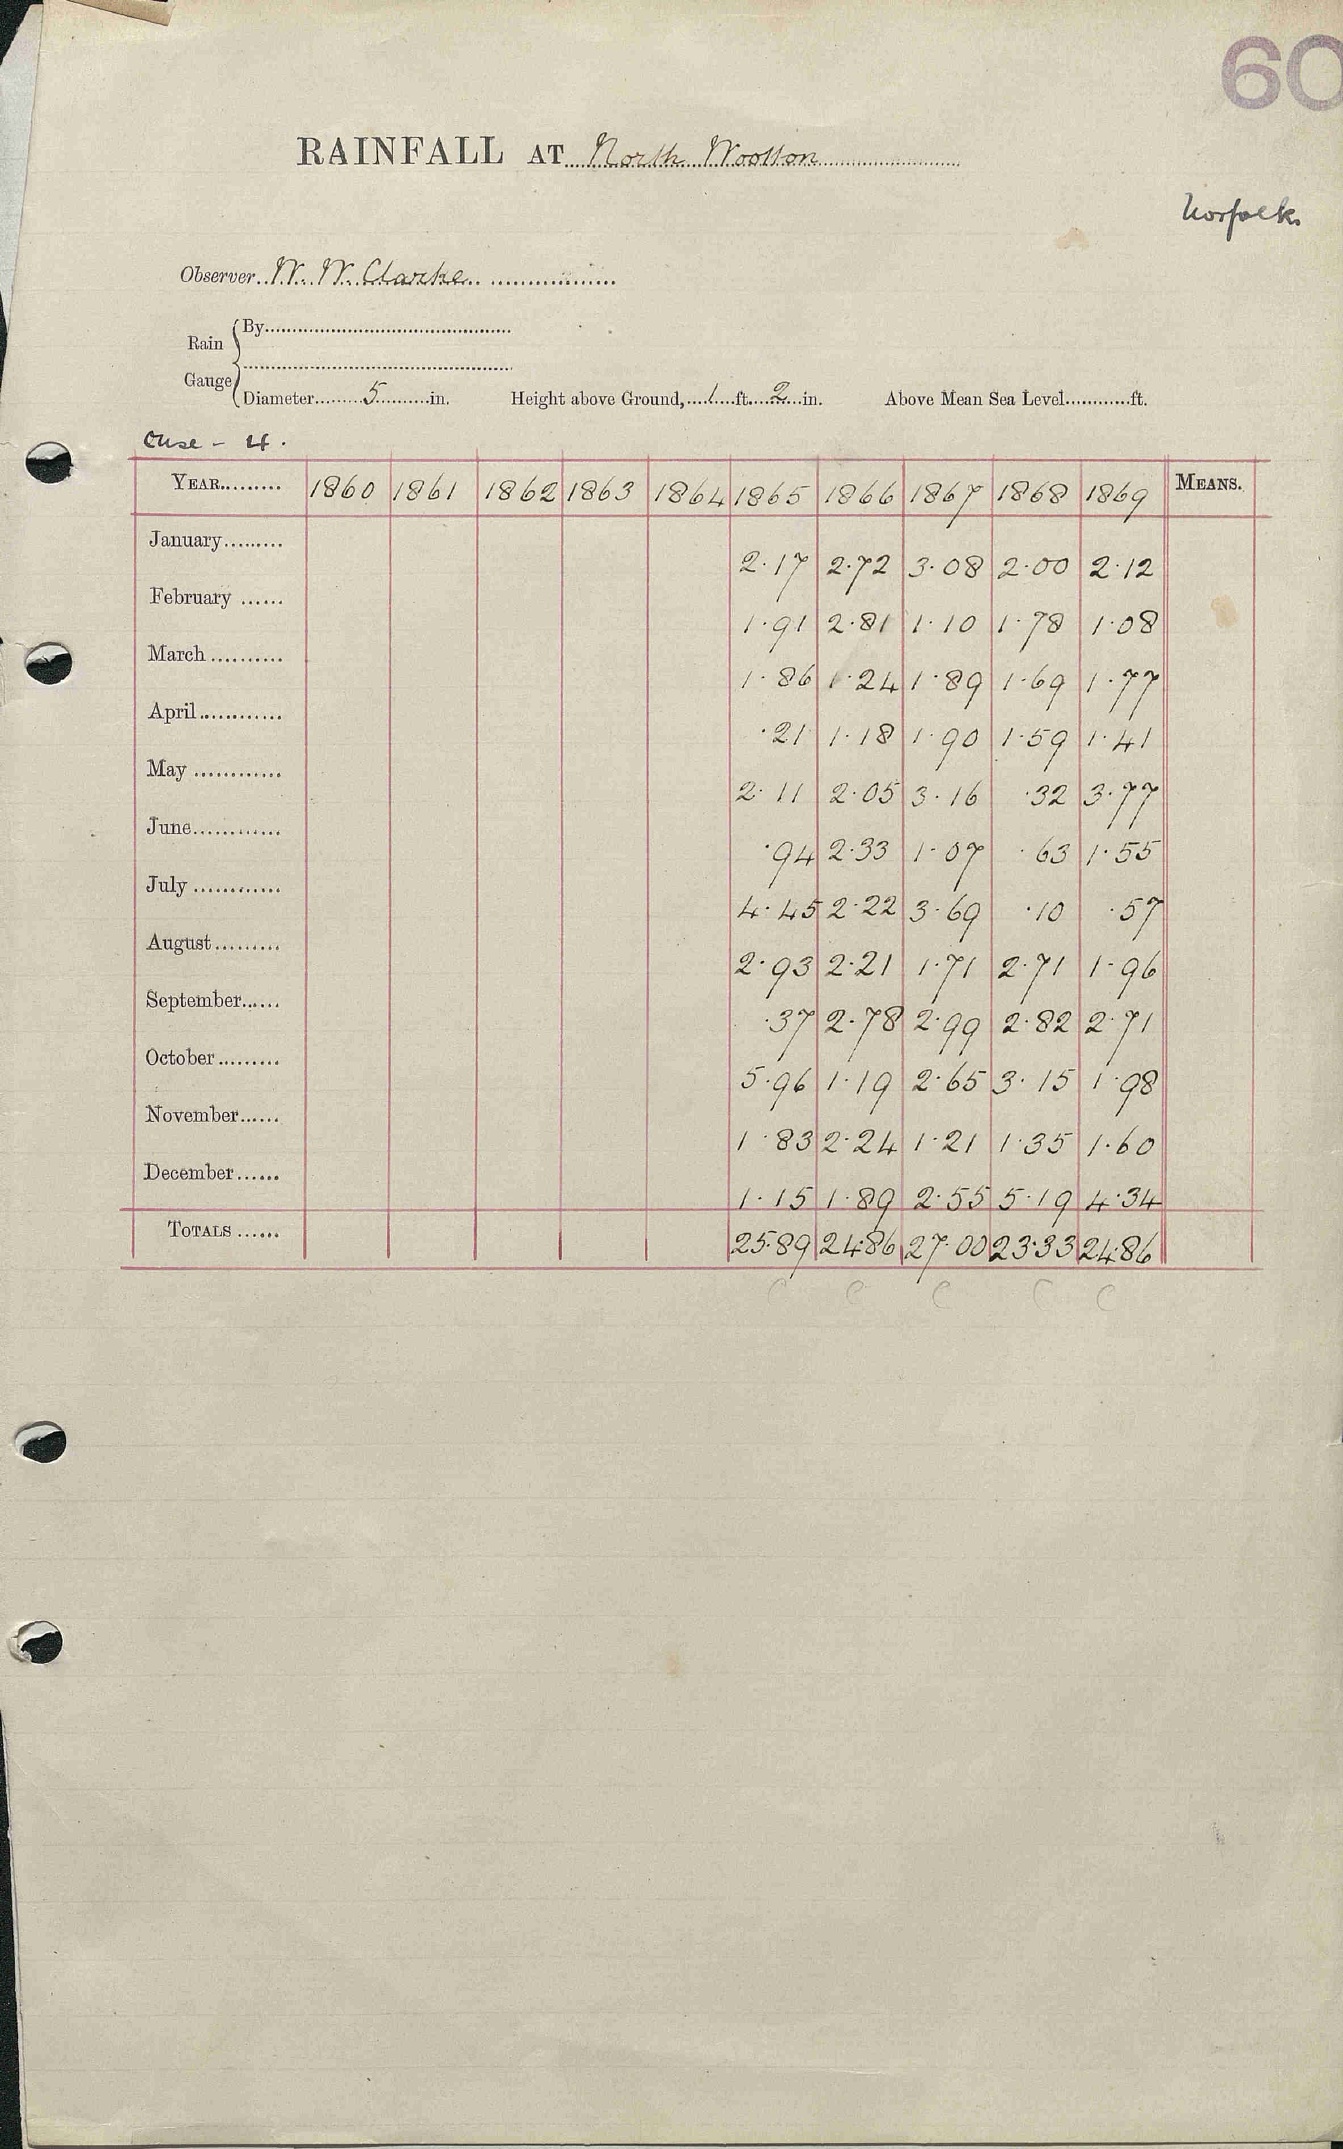 60
RAINFALL AT North Wootton
Norfolk
Observer W. W. Clarke
Rain Gauge
By
Diameter 5 in. Height above Ground, 1 ft. 2 in. Above Mean Sea Level ft.
Ouse - 4.
YEAR 1860 1861 1862 1863 1864 1865 1866 1867 1868 1869 MEANS.
January 2.17 2.72 3.08 2.00 2.12
February 1.91 2.81 1.10 1.78 1.08
March 1.86 1.24 1.89 1.69 1.77
April .21 1.18 1.90 1.59 1.41
May 2.11 2.05 3.16 .32 3.77
June .94 2.33 1.07 .63 1.55
July 4.45 2.22 3.69 .10 .57
August 2.93 2.21 1.71 2.71 1.96
September .37 2.78 2.99 2.82 2.71
October 5.96 1.19 2.65 3.15 1.98
November 1.83 2.24 1.21 1.35 1.60
December 1.15 1.89 2.55 5.19 4.34
TOTALS 25.89 24.86 27.00 23.33 24.86
C C C C C